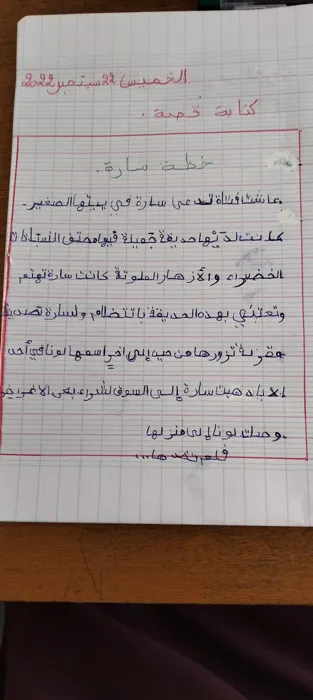 الخميس 22 سبتمبر 2022
كتابة قصة .
خطة سارة .
عاشت فتاة تدعى سارة في بيتها الصغير .
كانت لديها حديقة جميلة فيها مختلف النباتات
الخضراء والأزهار الملونة كانت سارة تهتم
وتعتني بهذه الحديقة بانتظام ولسارة صديقة
مقربة تزورها من حين إلى اخر اسمها لونا في أحد
الايا ذهبت سارة إلى السوق لشراء بعض الاغراض
وصلت لونا إلى منزلها
فلم تجدها...